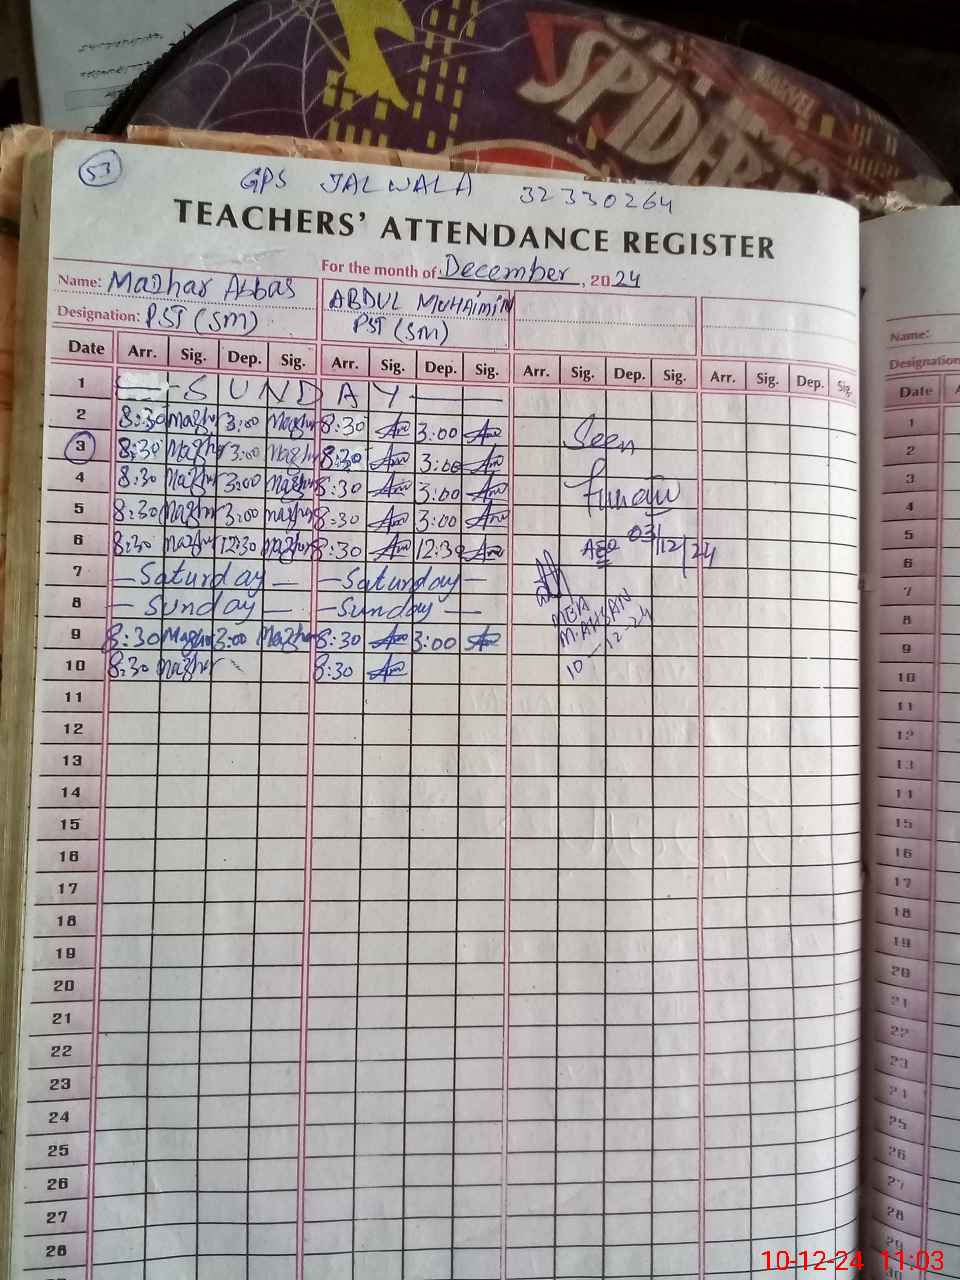 SPIDER
MARVEL
53
GPS JALWALA 32330264
TEACHERS' ATTENDANCE REGISTER
For the month of December, 2024
Name: Mazhar Abbas ABDUL MUHAIMIN
Designation: PST (SM) PST (SM)
Date Arr. Sig. Dep. Sig. Arr. Sig. Dep. Sig. Arr. Sig. Dep. Sig. Arr. Sig. Dep. Sig.
1 — SUNDAY —
2 8:30 Mazhar 3:00 Mazhar 8:30 3:00
3 8:30 Mazhar 3:00 Mazhar 8:30 3:00 Seen
4 8:30 Mazhar 3:00 Mazhar 8:30 3:00
5 8:30 Mazhar 3:00 Mazhar 8:30 3:00
6 8:30 Mazhar 12:30 Mazhar 8:30 12:30 AEO 03/12/24
7 — Saturday — — Saturday —
8 — Sunday — — Sunday — MEA
9 8:30 Mazhar 3:00 Mazhar 8:30 3:00 M. AHSAN
10 8:30 Mazhar 8:30 10-12-24
11
12
13
14
15
16
17
18
19
20
21
22
23
24
25
26
27
28
Name:
Designation
Date A
1
2
3
4
5
6
7
8
9
10
11
12
13
14
15
16
17
18
19
20
21
22
23
24
25
26
27
28
29
30
10-12-24 11:03